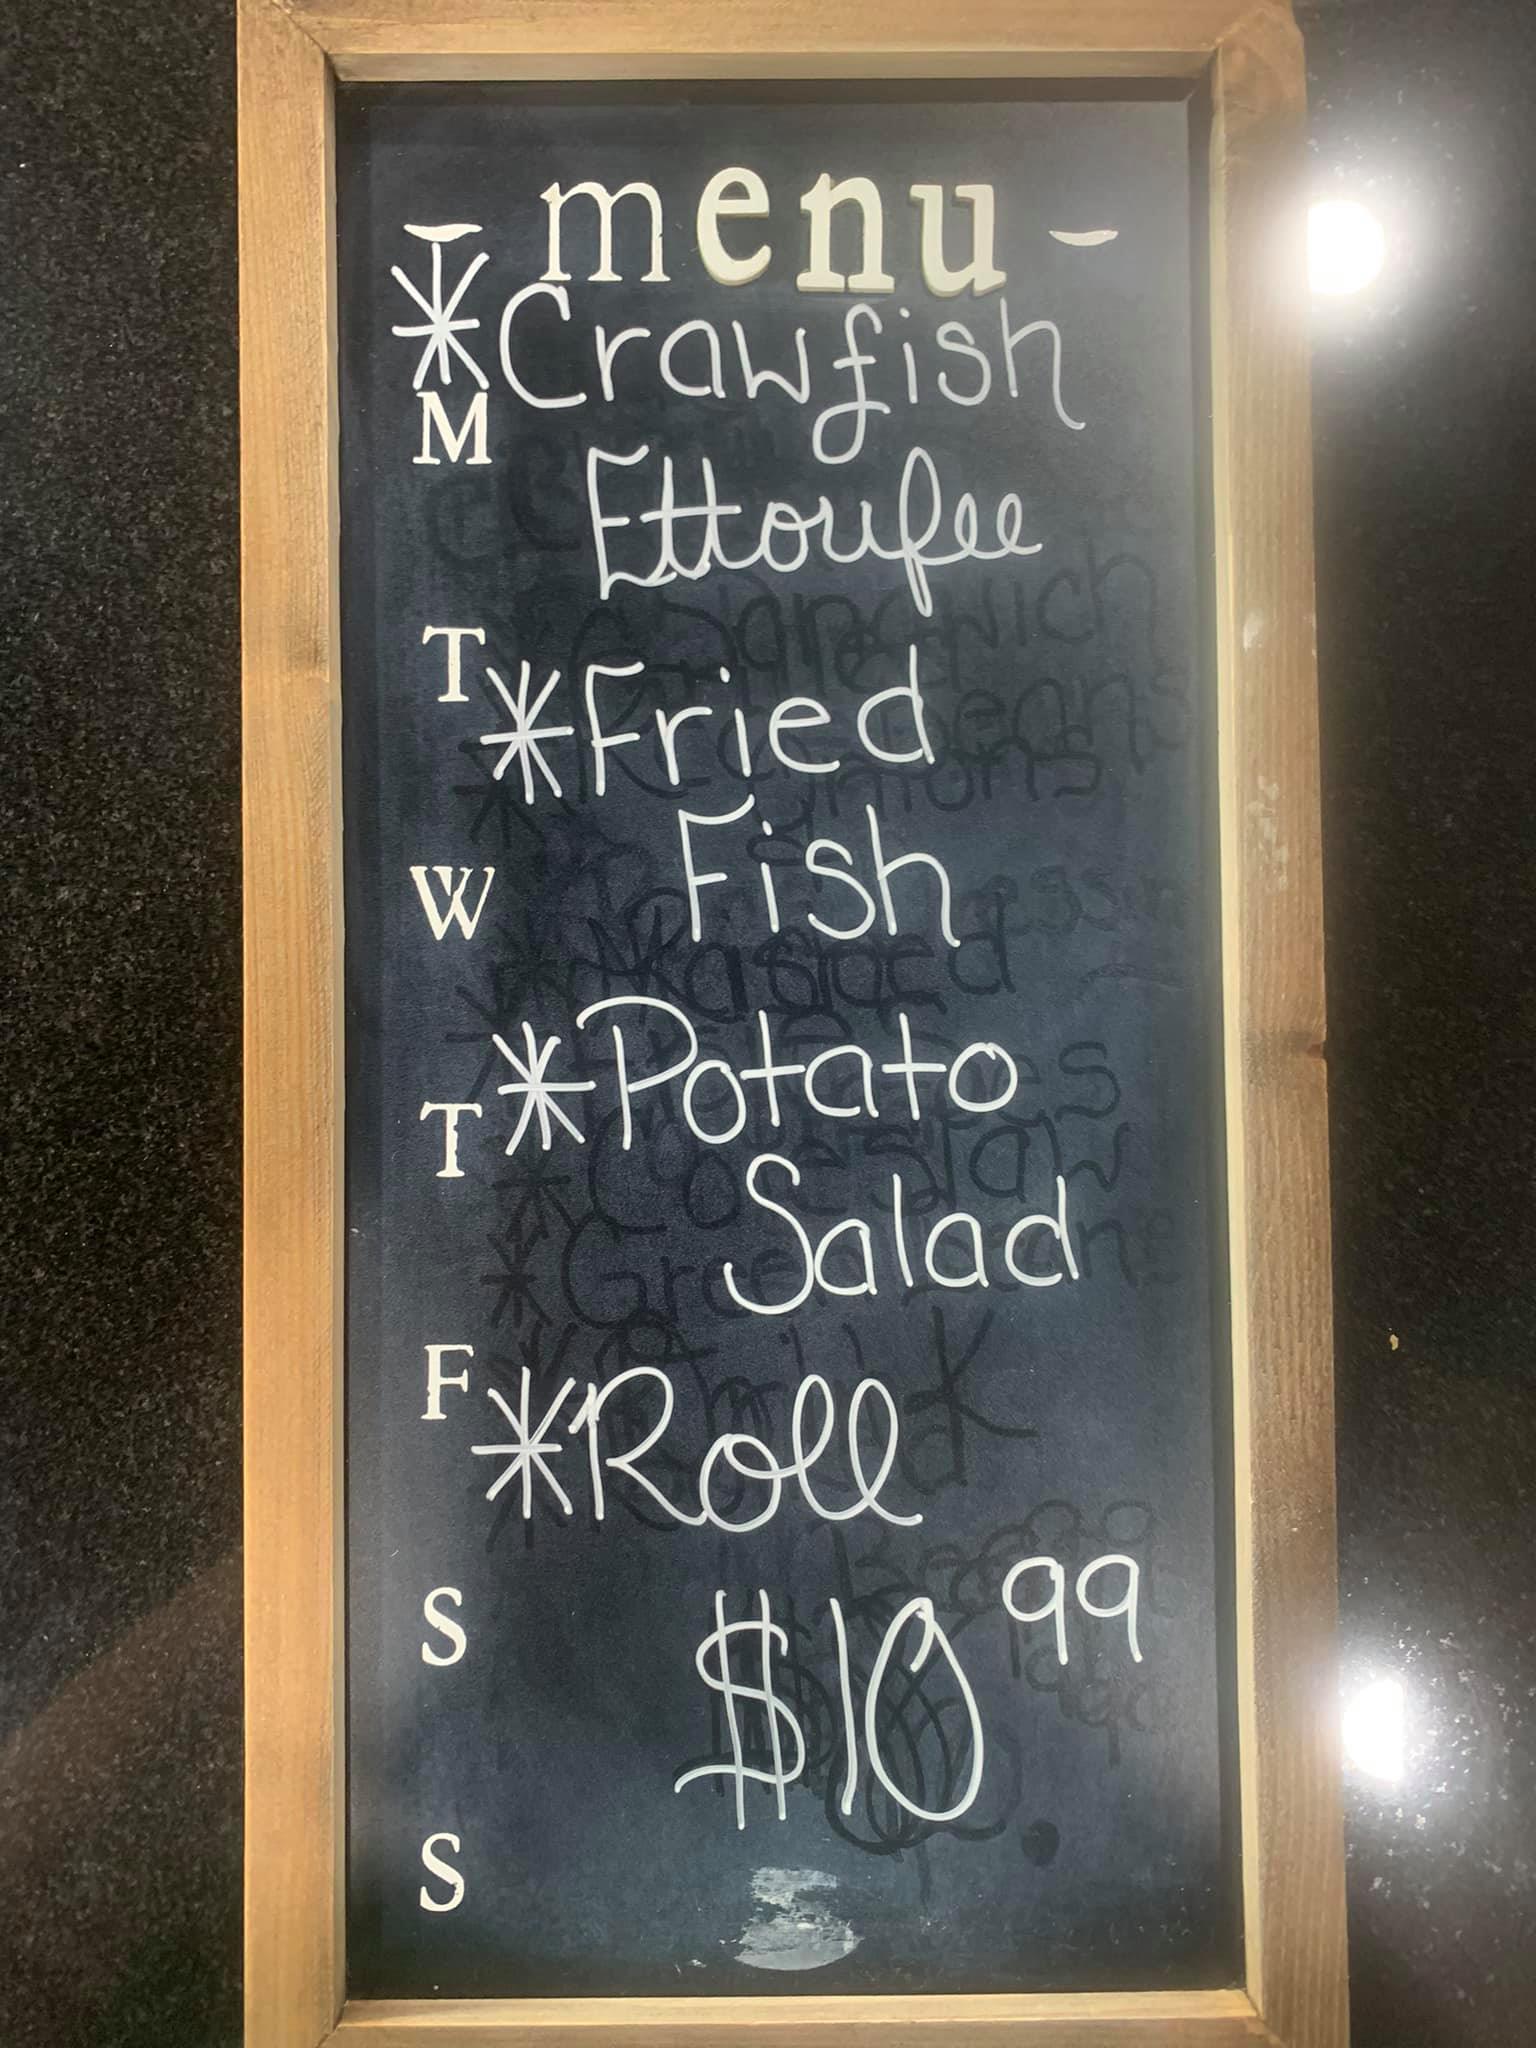 - menu -
* Crawfish
M
Ettoufee
T
* Fried
Fish
W
* Potato
T
Salad
F
* Roll
$10 99
S
S